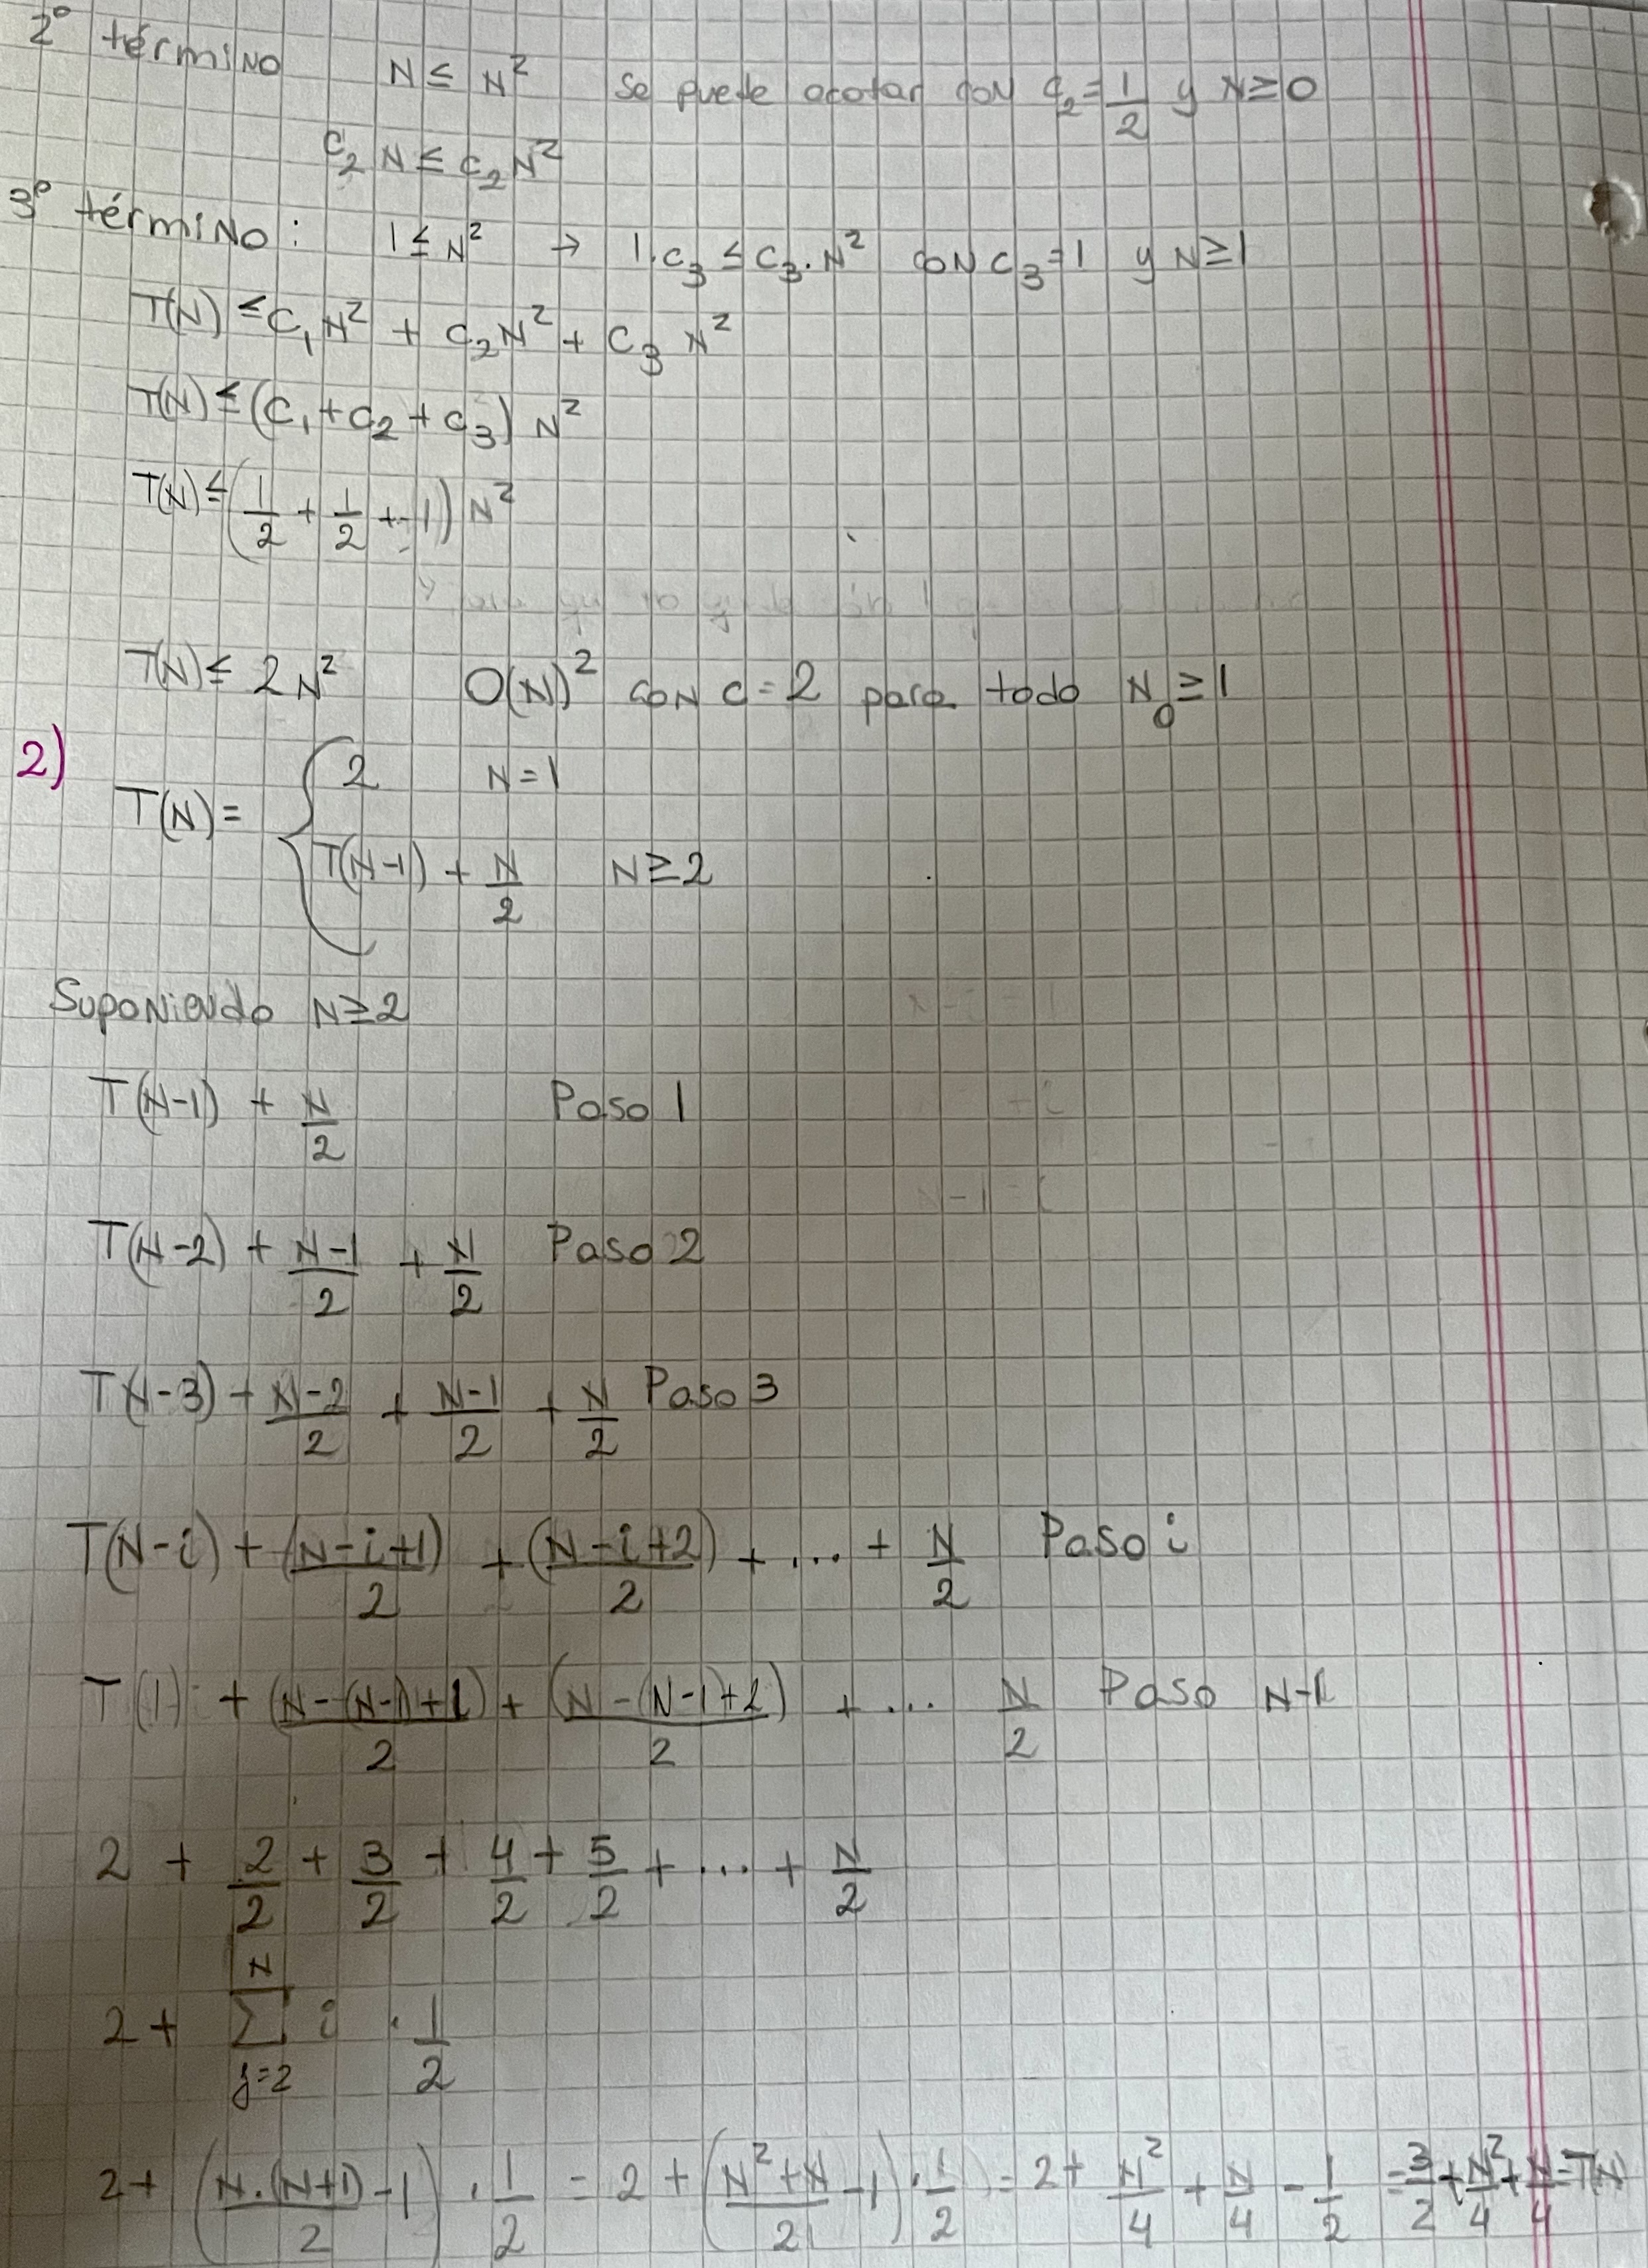 2º término N ≤ N² se puede acotar con c₂ = 1/2 y N ≥ 0
c₂ N ≤ c₂ N²
3º término: 1 ≤ N² → 1.c₃ ≤ c₃.N² con c₃ = 1 y N ≥ 1
T(N) ≤ c₁N² + c₂N² + c₃ N²
T(N) ≤ (c₁ + c₂ + c₃) N²
T(N) ≤ (1/2 + 1/2 + 1) N²
T(N) ≤ 2N² O(N)² con c = 2 para todo N₀ ≥ 1
2)
T(N) = { 2 N = 1
T(N-1) + N/2 N ≥ 2
Suponiendo N ≥ 2
T(N-1) + N/2 Paso 1
T(N-2) + N-1/2 + N/2 Paso 2
T(N-3) + N-2/2 + N-1/2 + N/2 Paso 3
T(N-i) + (N-i+1)/2 + (N-i+2)/2 + ... + N/2 Paso i
T(1) + (N-(N-1)+1)/2 + (N-(N-1+2)/2 + ... N/2 Paso N-1
2 + 2/2 + 3/2 + 4/2 + 5/2 + ... + N/2
2 + ∑_{j=2}^{N} i . 1/2
2 + (N.(N+1)/2 - 1) . 1/2 = 2 + (N²+N/2 - 1) . 1/2) = 2 + N²/4 + N/4 - 1/2 = 3/2 + N²/4 + N/4 = T(N)